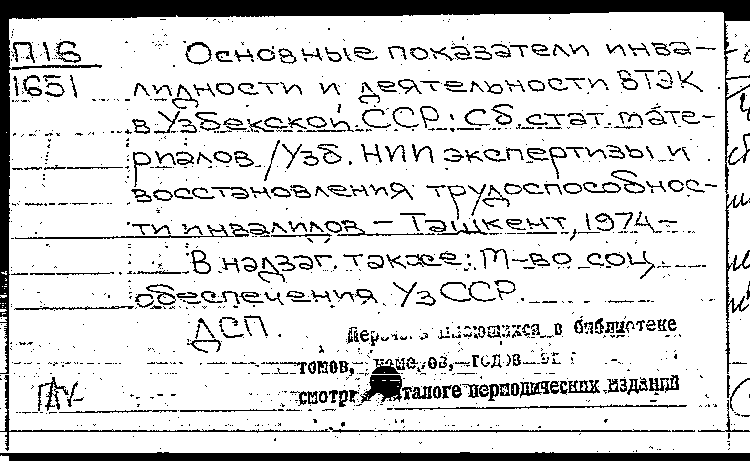 П16
1651
Основные показатели инва-
лидности и деятельности ВТЭК
в Узбекской ССР: Сб. стат. мате-
риалов / Узб. НИИ экспертизы и
восстановления трудоспособнос-
ти инвалидов – Ташкент, 1974 –
В надзаг. также: М-во соц.
обеспечения УзССР.
ДСП.
Перечень имеющихся в библиотеке
томов, номеров, годов
смотри каталоге периодических изданий